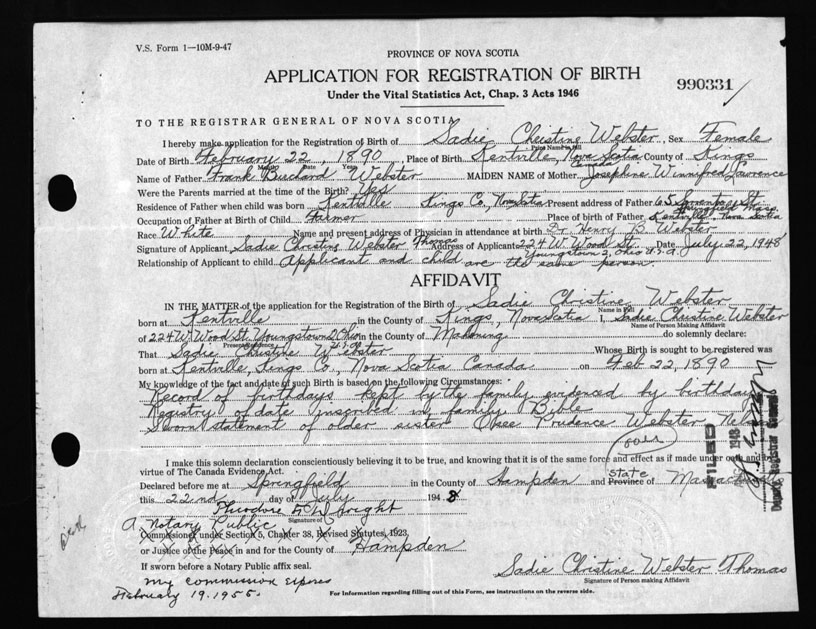 V.S. Form 1—10M-9-47
PROVINCE OF NOVA SCOTIA
APPLICATION FOR REGISTRATION OF BIRTH
990331
Under the Vital Statistics Act, Chap. 3 Acts 1946
TO THE REGISTRAR GENERAL OF NOVA SCOTIA
I hereby make application for the Registration of Birth of Sadie Christine Webster, Sex Female
Print Name in full
Date of Birth February 22, 1890, Place of Birth Kentville, Nova Scotia County of Kings
Canada
Name of Father Frank Burchard Webster MAIDEN NAME of Mother Josephine Winnifred Lawrence
Were the Parents married at the time of the Birth? Yes
Residence of Father when child was born Kentville Kings Co., Nova Scotia Present address of Father 65 St.
Springfield Mass.
Occupation of Father at Birth of Child Farmer Place of birth of Father Kentville Nova Scotia
Race White Name and present address of Physician in attendance at birth Dr Henry B. Webster
Signature of Applicant Sadie Christine Webster Thomas Address of Applicant 224 W. Wood St. Date July 22, 1948
Youngstown 2, Ohio U.S.A.
Relationship of Applicant to child Applicant and child are the same person.
AFFIDAVIT
IN THE MATTER of the application for the Registration of the Birth of Sadie Christine Webster
Name in Full
born at Kentville in the County of Kings, Nova Scotia I, Sadie Christine Webster
Name of Person Making Affidavit
of 224 W. Wood St Youngstown 2 Ohio in the County of Mahoning do solemnly declare:
Present Residence U.S.A.
That Sadie Christine Webster Whose Birth is sought to be registered was
born at Kentville, Kings Co., Nova Scotia Canada on Feb 22, 1890
My knowledge of the fact and date of such Birth is based on the following Circumstances:
Record of birthdays kept by the family evidenced by birthday
Registry of date inscribed in family Bible
Sworn statement of older sister Prudence Webster
(over)
I make this solemn declaration conscientiously believing it to be true, and knowing that it is of the same force and effect as if made under oath and by
virtue of The Canada Evidence Act.
state
Declared before me at Springfield in the County of Hampden and Province of
this 22nd day of July 1948
Theodore Wright
Signature of
A Notary Public
Commissioner under Section 5, Chapter 38, Revised Statutes, 1923.
or Justice of the Peace in and for the County of Hampden
If sworn before a Notary Public affix seal.
Sadie Christine Webster Thomas
Signature of Person making Affidavit
my commission expires
February 19, 1955.
For Information regarding filling out of this Form, see instructions on the reverse side.
FILED
1948
Deputy Registrar General